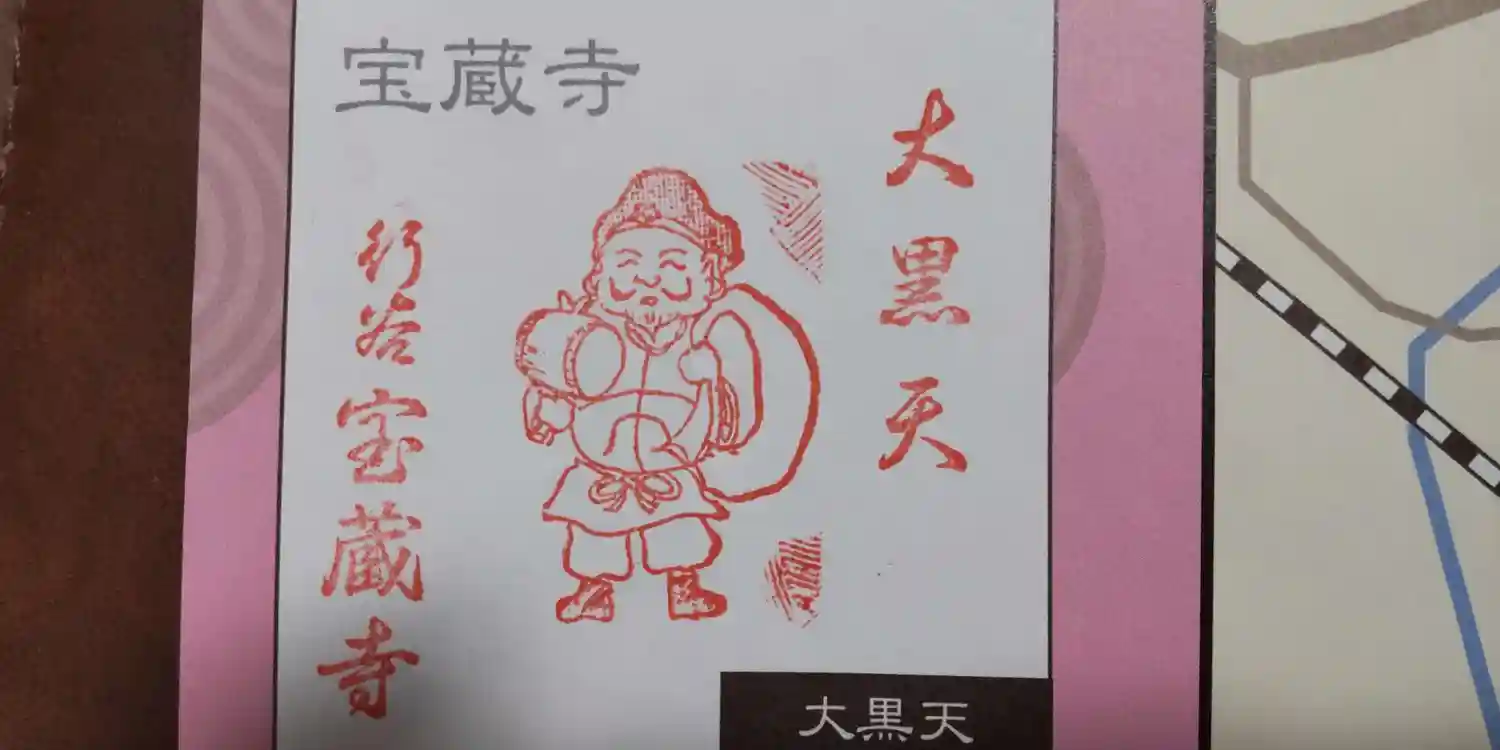 宝蔵寺
大黒天
行谷宝蔵寺
大黒天